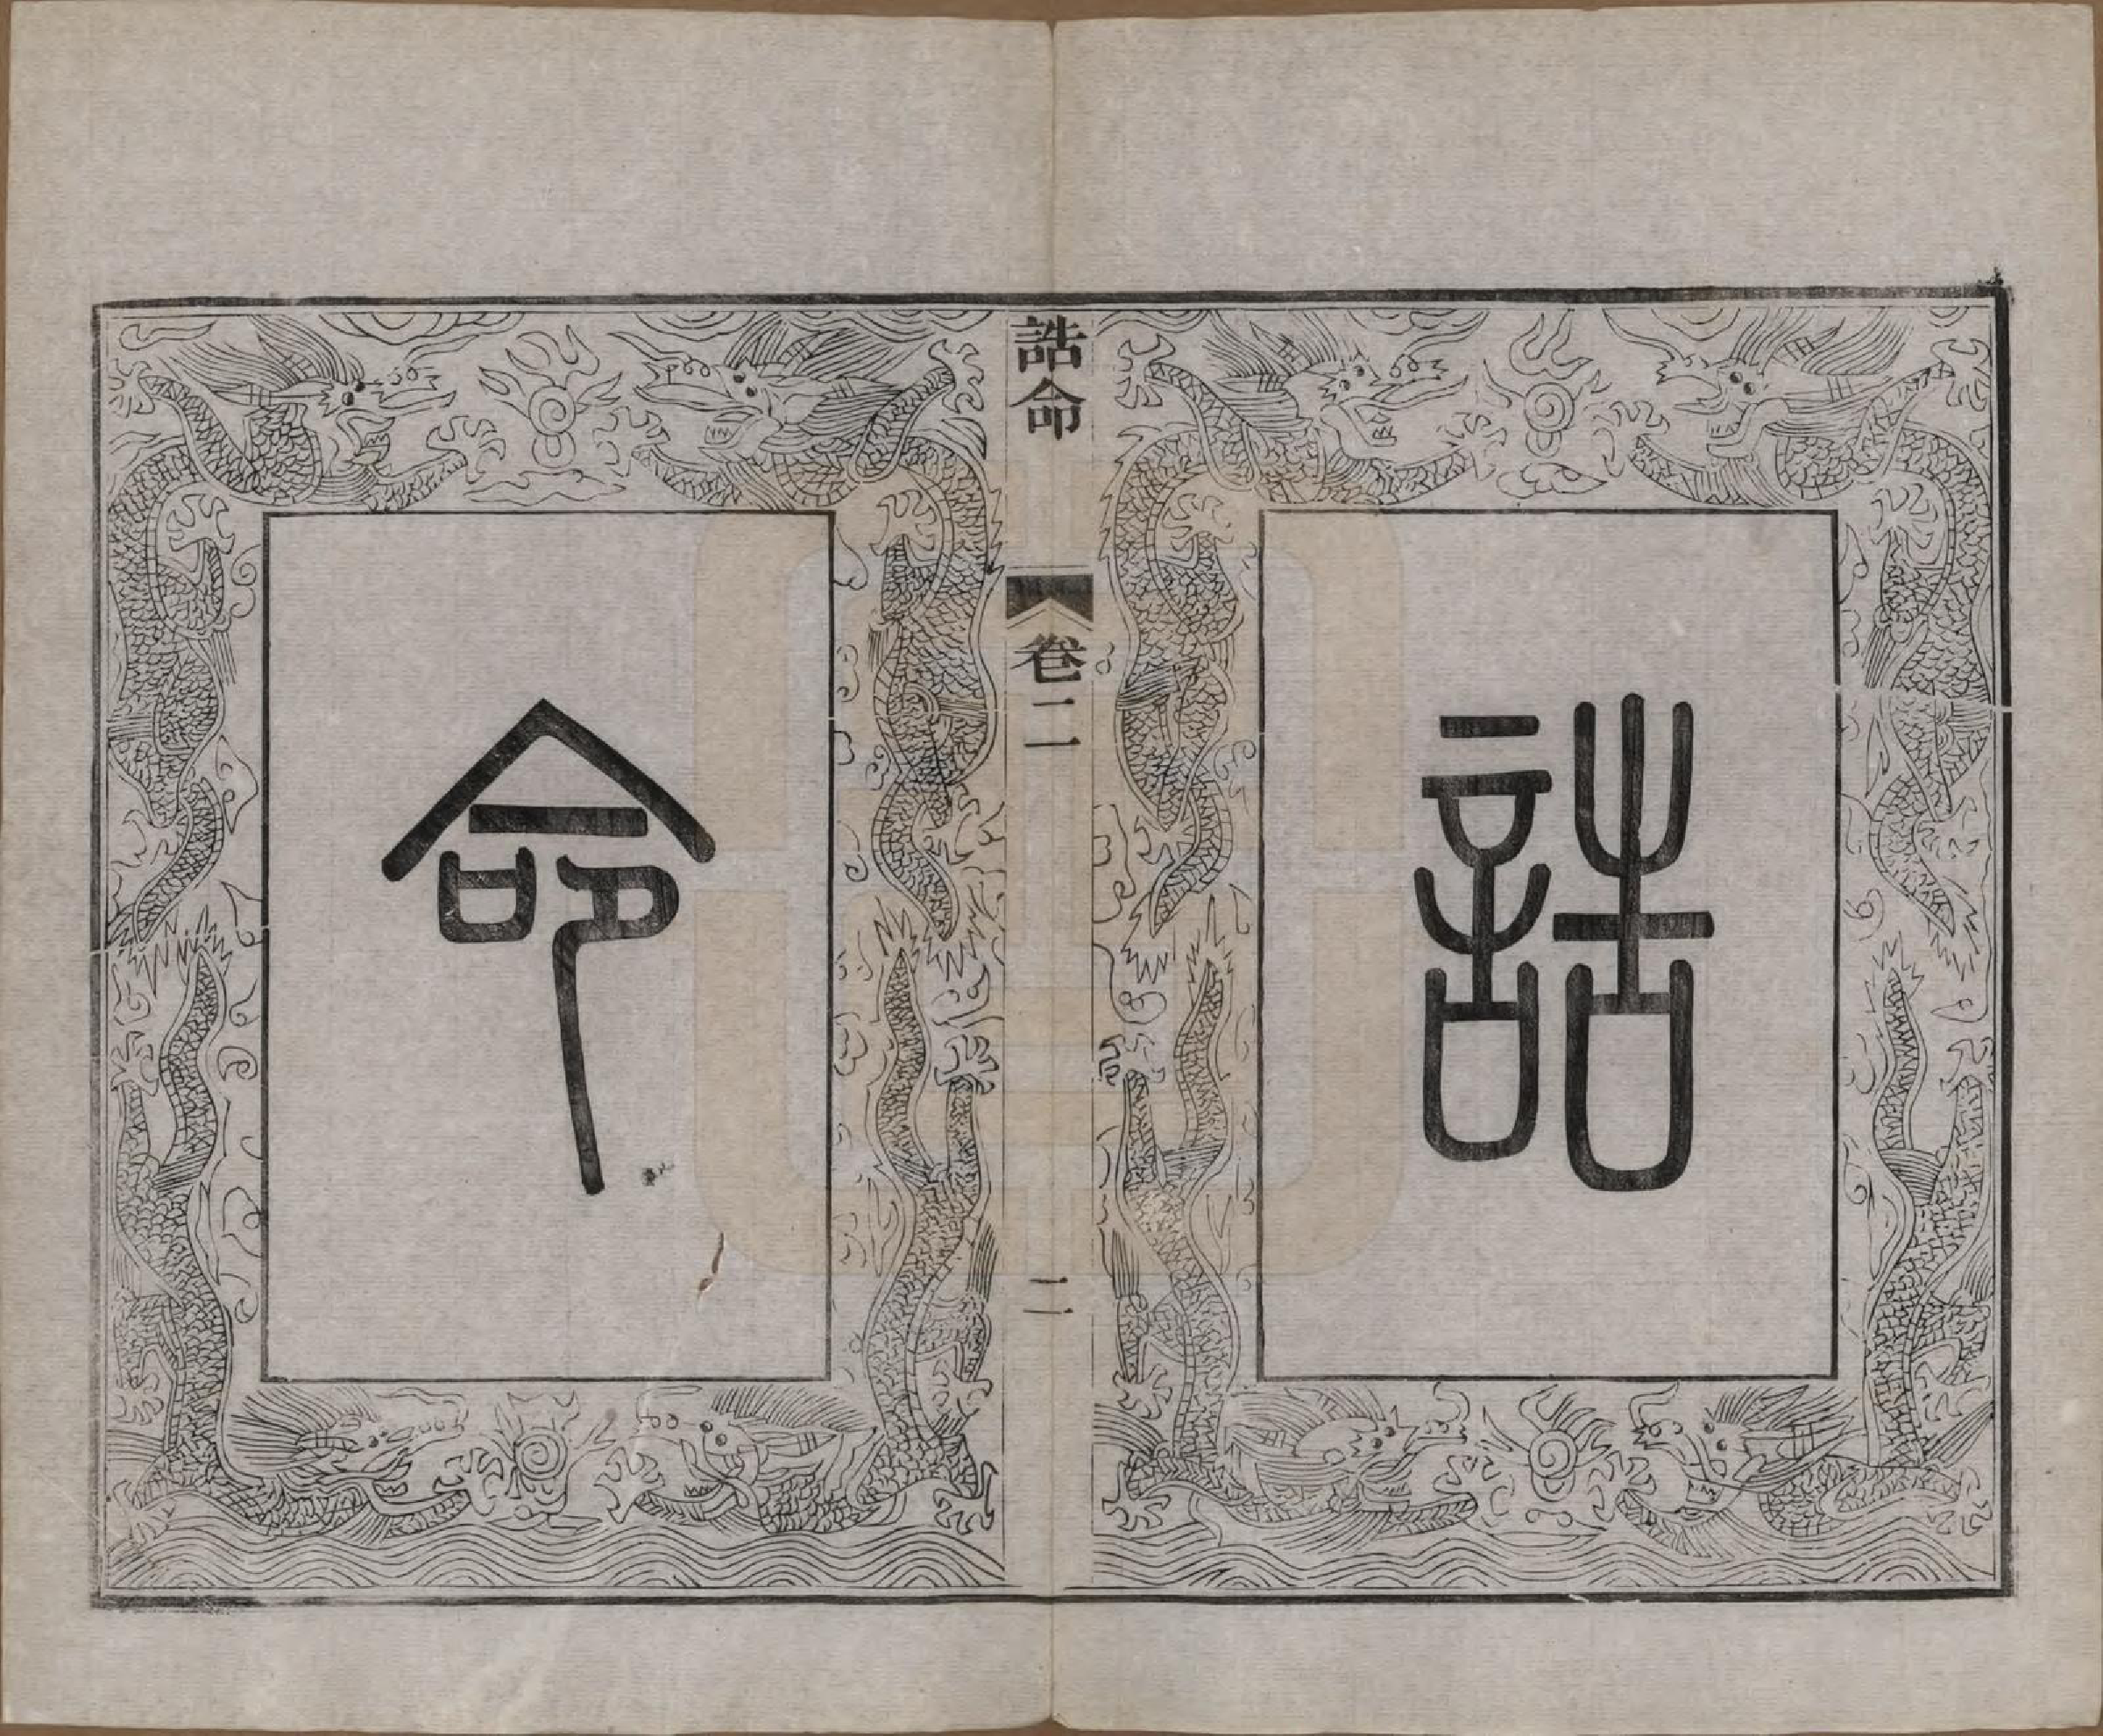 誥
誥命
卷二
二
命